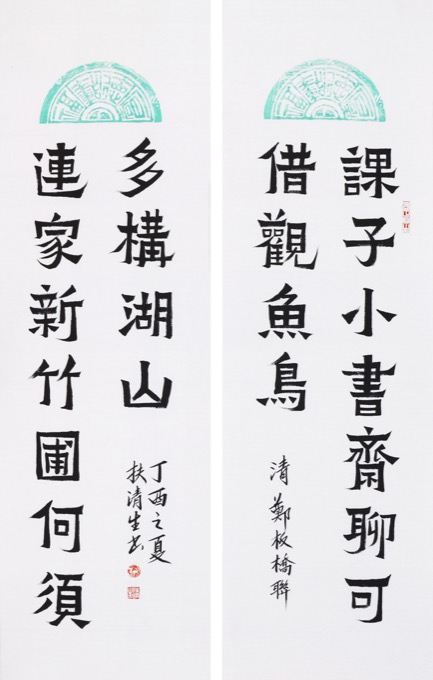 課子小書齋聊可
借觀魚鳥
清鄭板橋聯
連家新竹圃何須
多構湖山
丁酉之夏
扶清生书